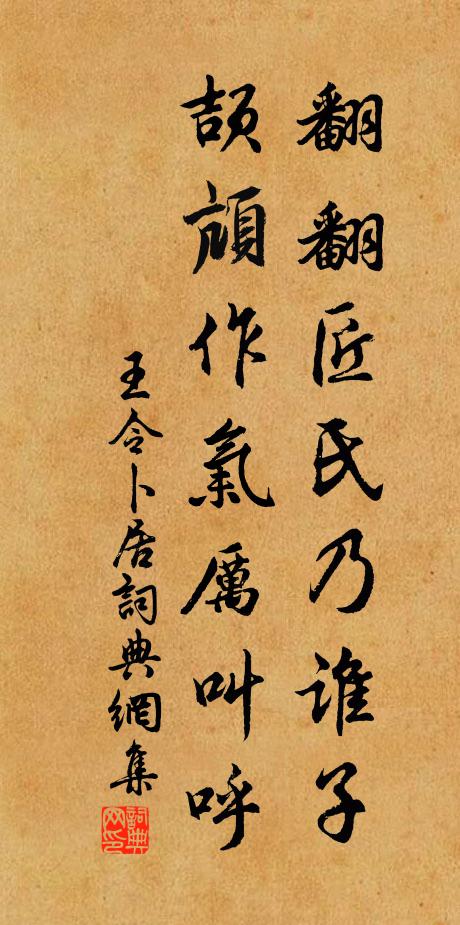 翻翻匠氏乃誰子
頡頏作氣厲叫呼
王令卜居詞典網集
詞典網印